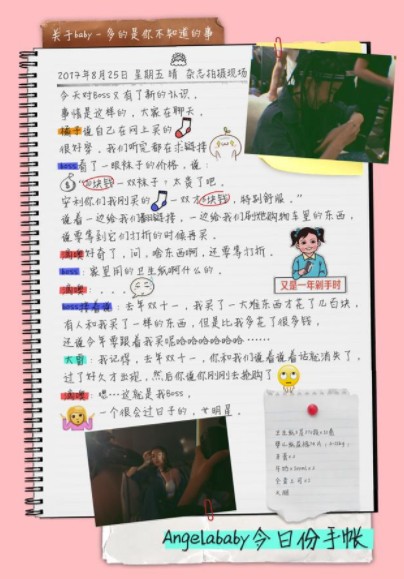 关于baby一多的是你不知道的事
2017年8月25日 星期五 晴 杂志拍摄现场
今天对Boss又有了新的认识。
事情是这样的,大家在聊天,
橘子说自己在网上买的
很好穿,我们听完都在求链接
boss看了一眼袜子的价格,说:
块钱一双袜子!太贵了吧。
安利你们我刚买的 一双才 块钱,特别舒服。"
说着一边给我们翻链接,一边给我们刷她购物车里的东西,
说要等到它们打折的时候再买。
好奇了,问,啥东西啊,还要等打折。
boss:家里用的卫生纸啊什么的。
:。。。。
又是一年剁手时
boss接着说:去年双十一,我买了一大堆东西才花了几百块,
有人和我买了一样的东西,但是比我多花了很多钱,
还说今年要跟着我买哈哈哈哈哈哈……
:我记得,去年双十一,你和我们说着说着话就消失了,
过了好久才出现,然后你说你刚刚去抢购了
:嗯…这就是我Boss,
一个很会过日子的,女明星。
Angelababy今日份手帐